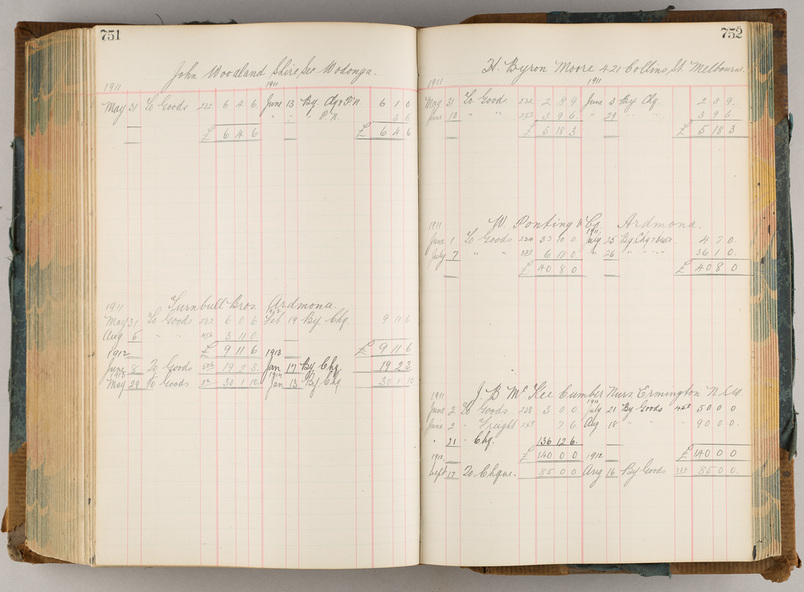 751
John Woodland Shire Sec Wodonga.
1911 1911
May 31 To Goods 232 6 4 6 June 13 By Chq & P.N. 6 1 0
" " " P.N. 3 6
£ 6 4 6 £ 6 4 6
1911 Turnbull Bros. Ardmona.
May 31 To Goods 6 0 6 Feb 19 By Chq 9 11 6
Aug 5 " " 3 11 0
1912 £ 9 11 6 1913 £ 9 11 6
June 8 To Goods 19 2 3 Jan 17 By Chq 19 2 3
May 29 To Goods 30 1 10 Jan 13 By Chq 30 1 10
752
H. Byron Moore 421 Collins St. Melbourne.
1911 1911
May 31 To Goods 232 2 8 9 June 3 By Chq. 2 8 9.
June 10 " " 3 9 6 " 29 " " 3 9 6
£ 5 18 3 £ 5 18 3
1911 W. Ponting & Co Ardmona.
June 1 To Goods 33 10 0 July 25 By Chq 4 7 0.
July 7 " " 6 18 0 " 26 " " 36 1 0.
£ 40 8 0 £ 40 8 0
1911 J B McKee Cumber Nurs Ermington N.S.W.
June 2 To Goods 233 3 0 0 July 21 By Goods 50 0 0
June 2 " Freight 7 6 Aug 18 " " 90 0 0.
" 21 " Chq. 136 12 6.
1912 £ 140 0 0 1912 £ 140 0 0
Sept 17 To Chque. 85 0 0 Aug 16 By Goods 85 0 0.